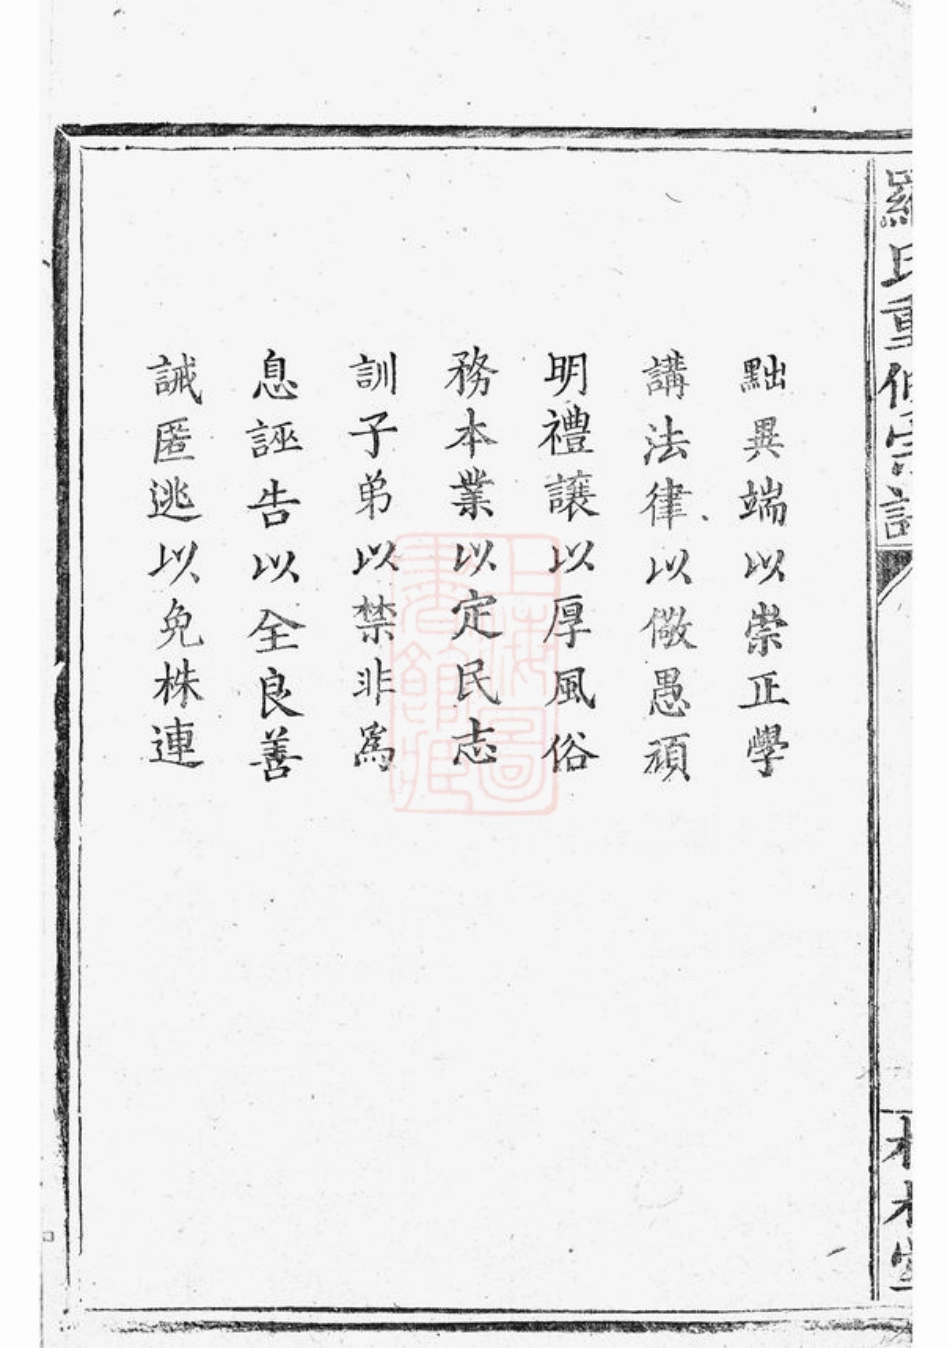 羅氏重修宗譜
黜異端以崇正學
講法律以儆愚頑
明禮讓以厚風俗
務本業以定民志
訓子弟以禁非為
息誣告以全良善
誡匿逃以免株連
上海圖書館藏